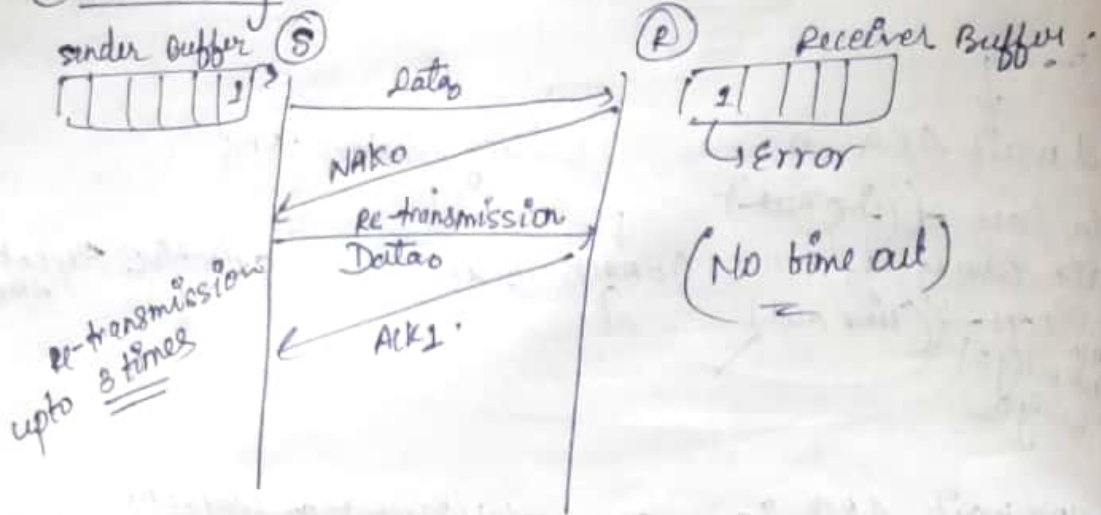 Sender Buffer S
R Receiver Buffer.
1
Data0
1
Error
NAK0
Re-transmission
Data0
(No time out)
Ack1.
Re-transmission
upto 3 times